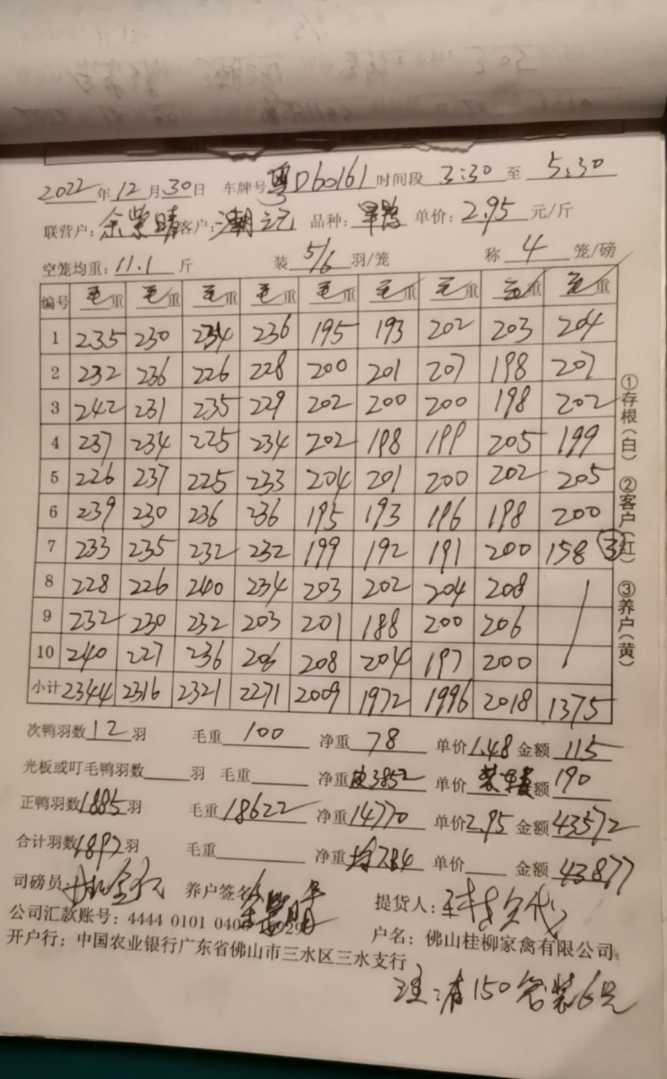 2022年12月30日 车牌号粤D60161时间段3:30至5:30
联营户:余紫晴客户:潮 品种: 单价:2.95元/斤
空笼均重:11.1斤 装5/6羽/笼 称4笼/磅
编号 毛重 毛重 毛重 毛重 毛重 毛重 毛重 毛重 毛重
1 235 230 234 236 195 193 202 203 204
2 232 236 226 228 200 201 207 198 207
3 242 231 235 229 202 200 200 198 202
4 237 234 225 234 202 198 199 205 199
5 226 237 225 233 204 201 200 202 205
6 239 230 236 236 195 193 196 198 200
7 233 235 232 232 199 192 191 200 158 ③
8 228 226 240 234 203 202 204 208
9 232 230 232 203 201 188 200 206
10 240 227 236 206 208 204 197 200
小计 2344 2316 2321 2271 2009 1972 1996 2018 1375
①存根(白) ②客户(红) ③养户(黄)
次鸭羽数12羽 毛重100 净重78 单价1.48 金额115
光板或叮毛鸭羽数 羽 毛重 净重皮3852 单价 装车费额190
正鸭羽数1885羽 毛重18622 净重14770 单价2.95 金额43572
合计羽数1897羽 毛重 净重均7.84 单价 金额43877
司磅员 养户签名余紫晴 提货人:
公司汇款账号:4444 0101 040 029 户名:佛山桂柳家禽有限公司
开户行:中国农业银行广东省佛山市三水区三水支行
注:有150笼装6只